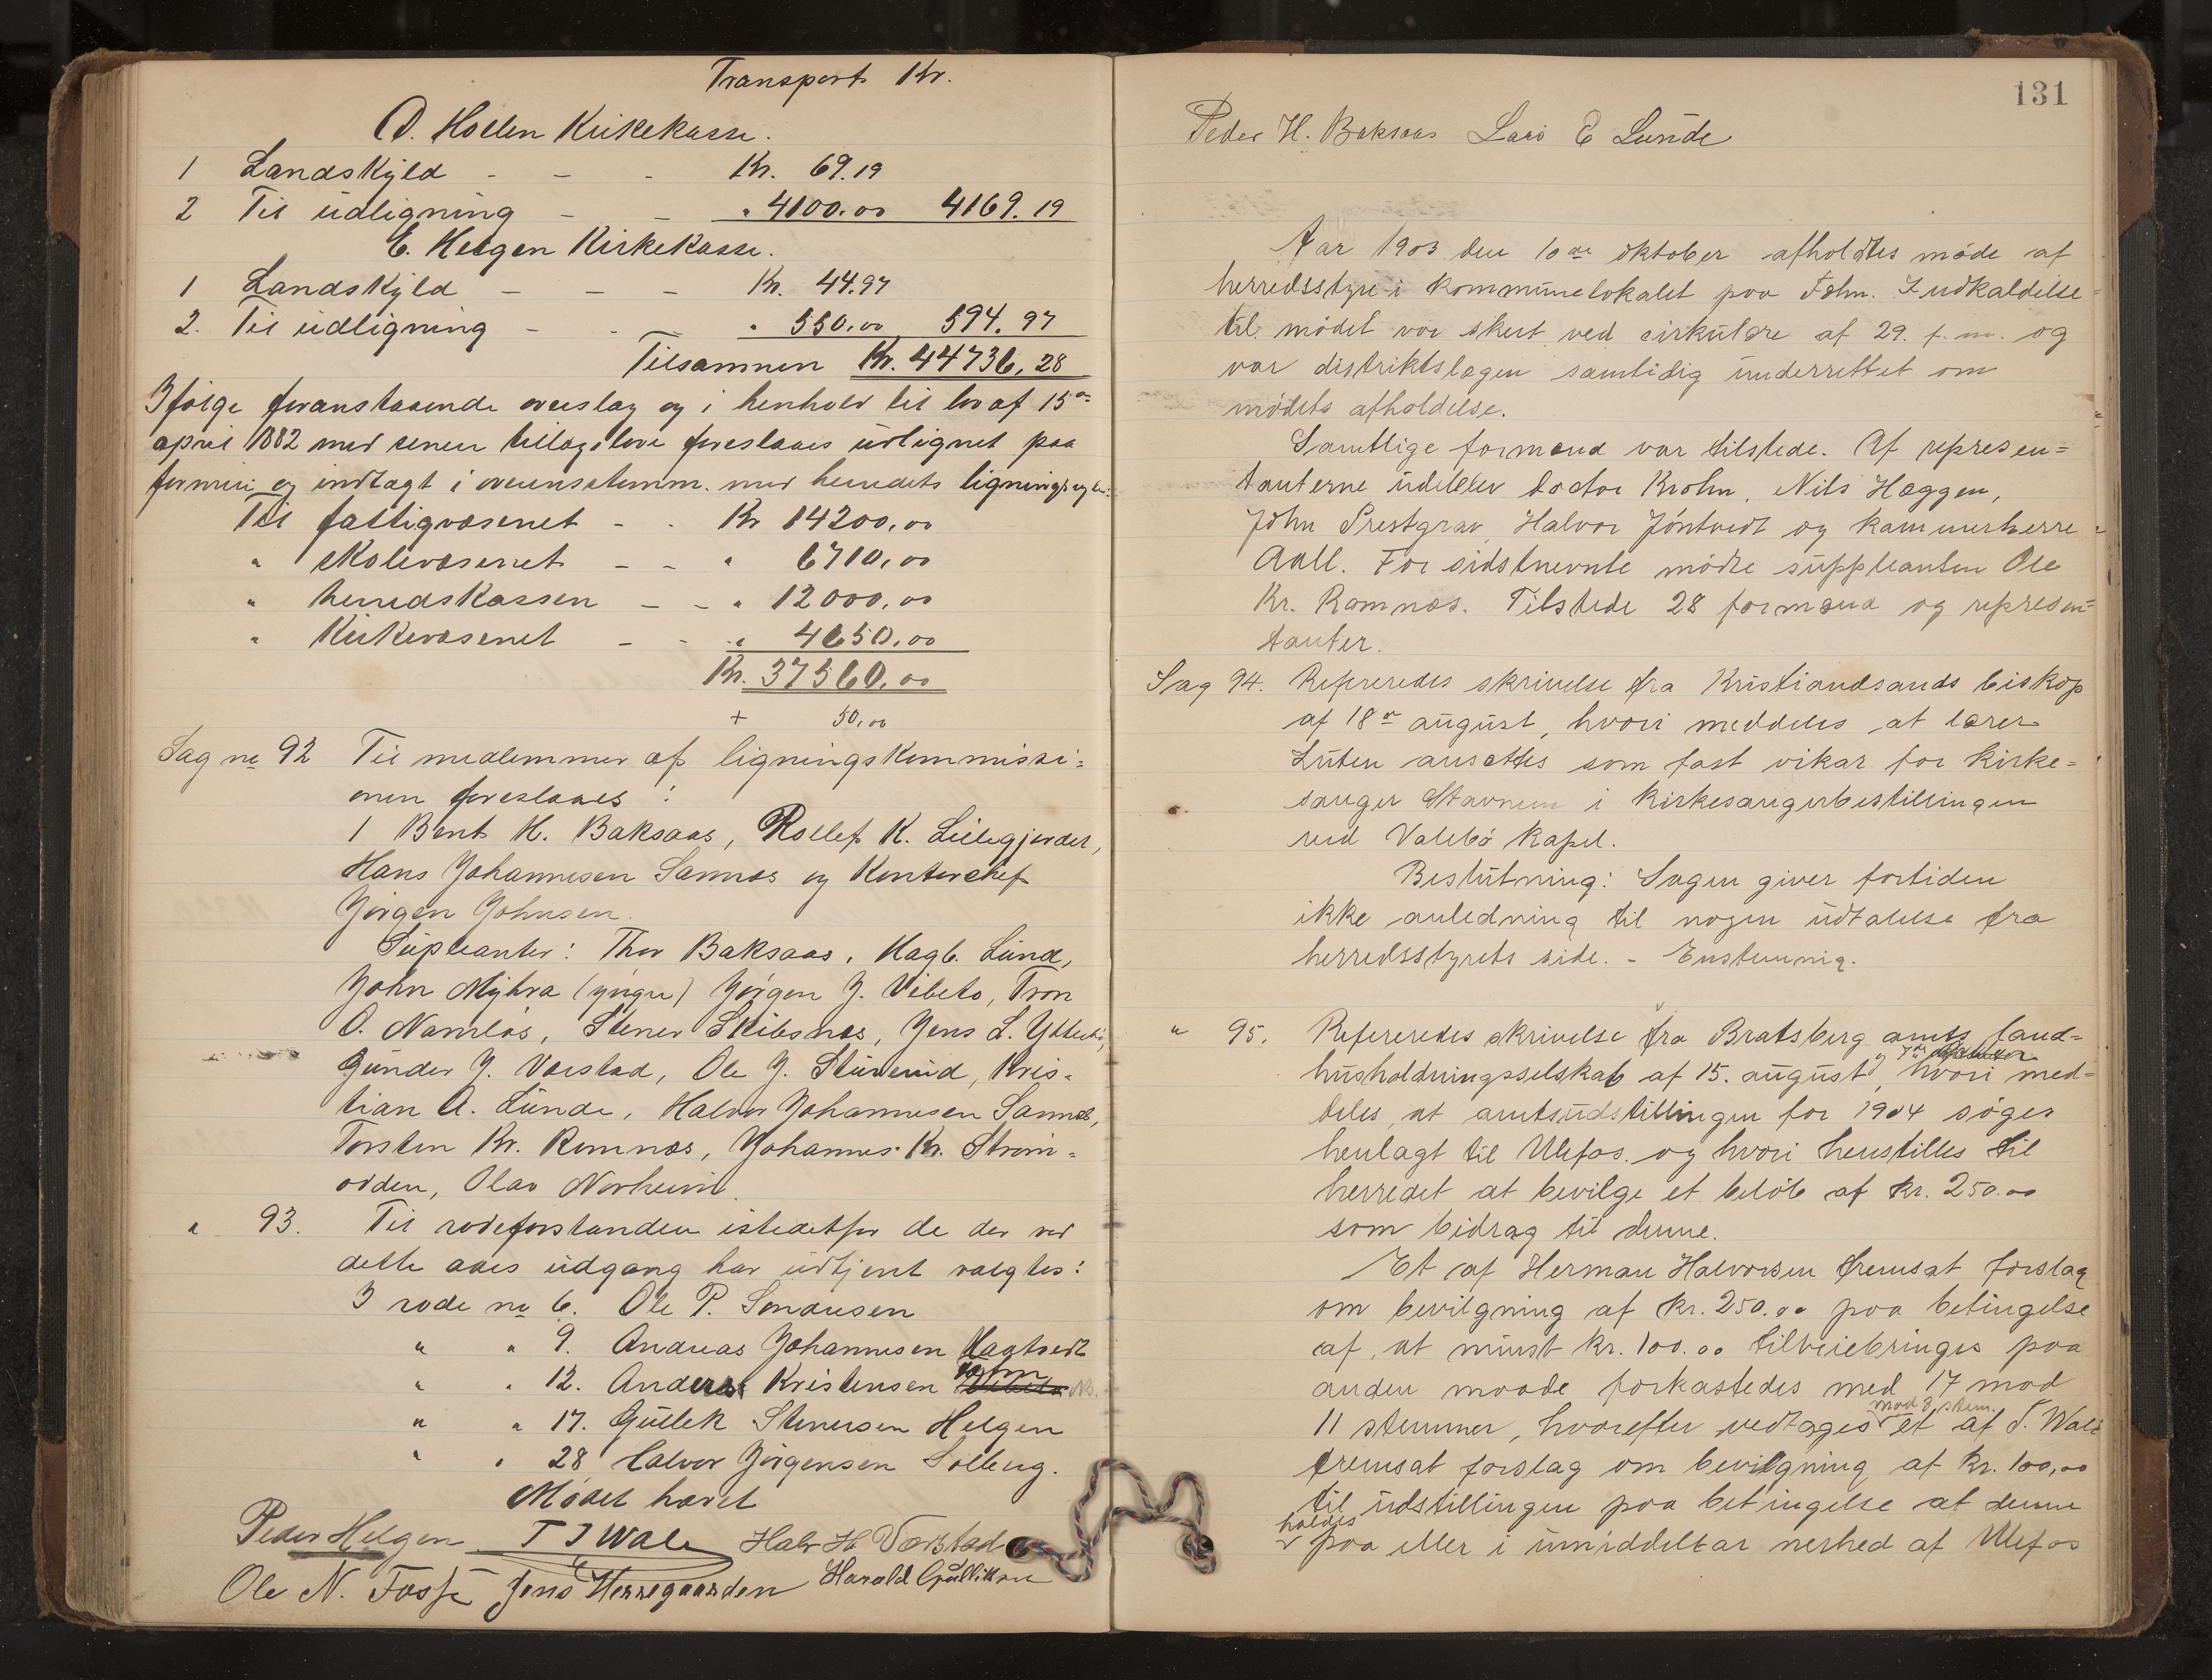 Transport Kr.
D. Hollen Kirkekasse.
1 Landskyld - - - Kr. 69.19
2 Til udligning - - " 4100.00 4169.19
E. Helgen Kirkekasse.
1 Landskyld - - - Kr. 44.97
2. Til udligning - - " 550.00 594.97
Tilsammen Kr. 44736,28
Ifølge foranstaaende overslag og i henhold til lov af 15de
april 1882 med senere tillægslove foreslaaes udlignet paa
formue og indtægt i overensstemm. med herredets
Til fattigvæsenet - - Kr 14200,00
" skolevæsenet - - " 6710,00
" herredskassen - - " 12000,00
" Kirkevæsenet - - " 4650,00
Kr. 37560,00
+ 50,00
Sag no 92 Til medlemmer af ligningskommissi=
onen foreslaaes :
1 Bent H. Baksaas, Rollef K. Lillegjordet,
Hans Johannesen Sannæs og Kontorchef
Jørgen Johnsen.
Supleanter: Thor Baksaas, Hagb. Lund,
John Myhra (yngre) Jørgen J. Vibeto, Tron
O. Namløs, Stener Skibsnæs, Jens L.
Gunder J. Værstad, Ole J. Kris=
tian A. Lunde, Halvor Johannesen Sannæs,
Torsten Kr. Romnæs, Johannes Kr. Strøm=
odden, Olav Norheim.
" 93. Til rodeforstandere istedetfor de der ved
dette aars udgang har udtjent valgtes:
I rode no 6. Ole P. Sondresen
" " 9. Andreas Johannesen Hagtvedt
" " 12. Anders Kristensen
" " 17. Gullek Stenersen Helgen
" " 28 Halvor Jørgensen Solberg.
Mødet hævet
Peder Helgen T J Wale Halv H Værstad
Ole N. Fosse Jens Herregaarden Harald Gullikson
131
Peder H. Baksaas Lars E Lunde
Aar 1903 den 10de oktober afholdtes møde af
herredsstyre i kommunelokalet paa Fehn. Indkaldelse
til mødet var skeet ved cirkulære af 29. f. m. og
var distriktslægen samtidig underrettet om
mødets afholdelse.
Samtlige formænd var tilstede. Af represen=
tanterne udeblev doctor Krohn, Nils Hæggen,
John Prestgrav, Halvor Jøntvedt og kammerherre
Aall. For sidstnevnte mødte suppleanten Ole
Kr. Romnæs. Tilstede 28 formænd og represen=
tanter.
Sag 94. Refereredes skrivelse fra Kristiandsands biskop
af 18de august, hvori meddeles at lærer
Luten ansættes som fast vikar for kirke=
sanger Stavnem i kirkesangerbestillingen
ved Valebø kapel.
Beslutning: Sagen giver fortiden
ikke anledning til nogen udtalelse fra
herredsstyrets side. - Enstemmig.
" 95. Refereredes skrivelse fra Bratsberg amts land=
husholdningsselskab af 15. august, hvori med=
deles, at amtsudstillingen for 1904 søges
henlagt til Ulefos og hvori henstilles til
herredet at bevilge et beløb af kr. 250.00
som bidrag til denne.
Et af Herman Halvorsen fremsat forslag
om bevilgning af kr. 250.00 paa betingelse
af, at minst kr. 100.00 tilveiebringes paa
anden maade forkastedes med 17 mod
11 stemmer, hvorefter vedtoges mod 8 stem. et af T. Wale
fremsat forslag om bevilgning af kr. 100,00
til udstillingen paa betingelse at denne
holdes paa eller i umiddelbar nerhed af Ulefos